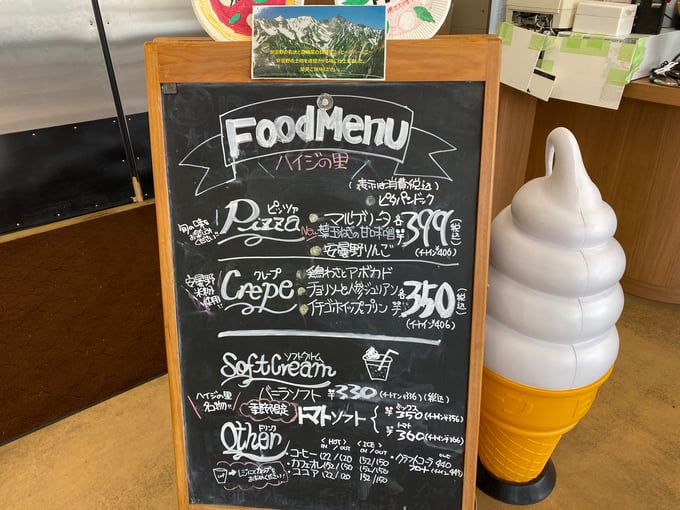 Food Menu
ハイジの里
(表示は消費税込)
ピタパンドック
旬の味を
お楽しみ
ください!
ピッツァ
Pizza
マルゲリータ
New 葉玉ねぎの甘口味噌
安曇野りんご
各¥399(税込)
(イートイン¥406)
安曇野
米粉
使用!!
クレープ
Crepe
鶏わさとアボカド
チョリソーと人参ジュリアン
イチゴホイッププリン
各¥350(税込)
(イートイン¥406)
ソフトクリーム
Soft Cream
バニラソフト ¥330(イートイン¥316)(税込)
ハイジの里
名物!!
季節限定
トマトソフト
ミックス
¥350(イートイン¥356)
トマト
¥360(イートイン¥366)
ドリンク
Other
<HOT> <ICE>
IN / OUT IN / OUT
・コーヒー 122/120 152/150
・カフェオレ 152/150 152/150
・ココア 122/120 152/150
・クラフトコーラ 440
フロート